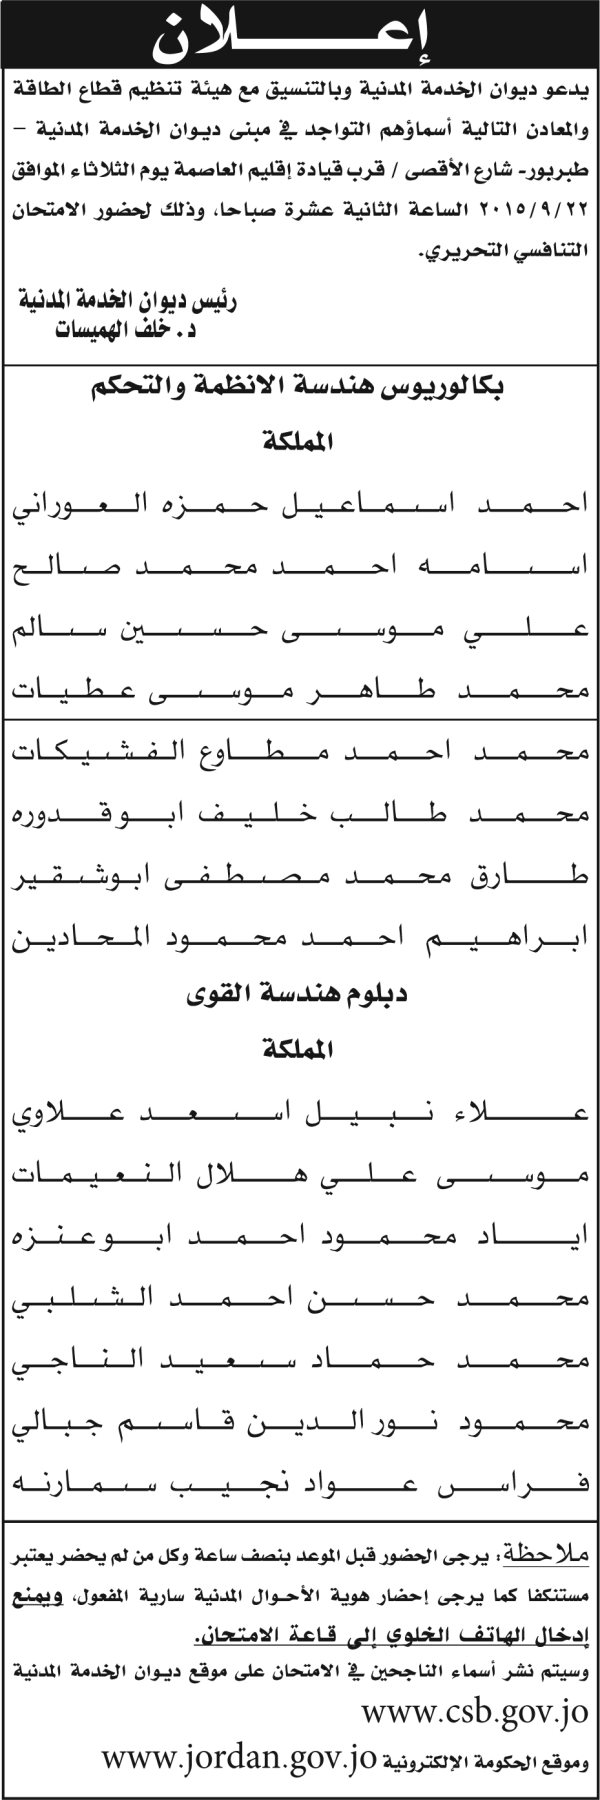 إعـــلان
يدعو ديوان الخدمة المدنية وبالتنسيق مع هيئة تنظيم قطاع الطاقة
والمعادن التالية أسماؤهم التواجد في مبنى ديوان الخدمة المدنية –
طبربور- شارع الأقصى / قرب قيادة إقليم العاصمة يوم الثلاثاء الموافق
٢٠١٥/٩/٢٢ الساعة الثانية عشرة صباحا، وذلك لحضور الامتحان
التنافسي التحريري.
رئيس ديوان الخدمة المدنية
د. خلف الهميسات
بكالوريوس هندسة الانظمة والتحكم
المملكة
احمد اسماعيل حمزه العوراني
اسامه احمد محمد صالح
علي موسى حسين سالم
محمد طاهر موسى عطيات
محمد احمد مطاوع الفشيكات
محمد طالب خليف ابوقدوره
طارق محمد مصطفى ابوشقير
ابراهيم احمد محمود المحادين
دبلوم هندسة القوى
المملكة
علاء نبيل اسعد علاوي
موسى علي هلال النعيمات
اياد محمود احمد ابوعنزه
محمد حسن احمد الشلبي
محمد حماد سعيد الناجي
محمود نورالدين قاسم جبالي
فراس عواد نجيب سمارنه
ملاحظة: يرجى الحضور قبل الموعد بنصف ساعة وكل من لم يحضر يعتبر
مستنكفا كما يرجى إحضار هوية الأحوال المدنية سارية المفعول، ويمنع
إدخال الهاتف الخلوي إلى قاعة الامتحان.
وسيتم نشر أسماء الناجحين في الامتحان على موقع ديوان الخدمة المدنية
www.csb.gov.jo
وموقع الحكومة الإلكترونية www.jordan.gov.jo